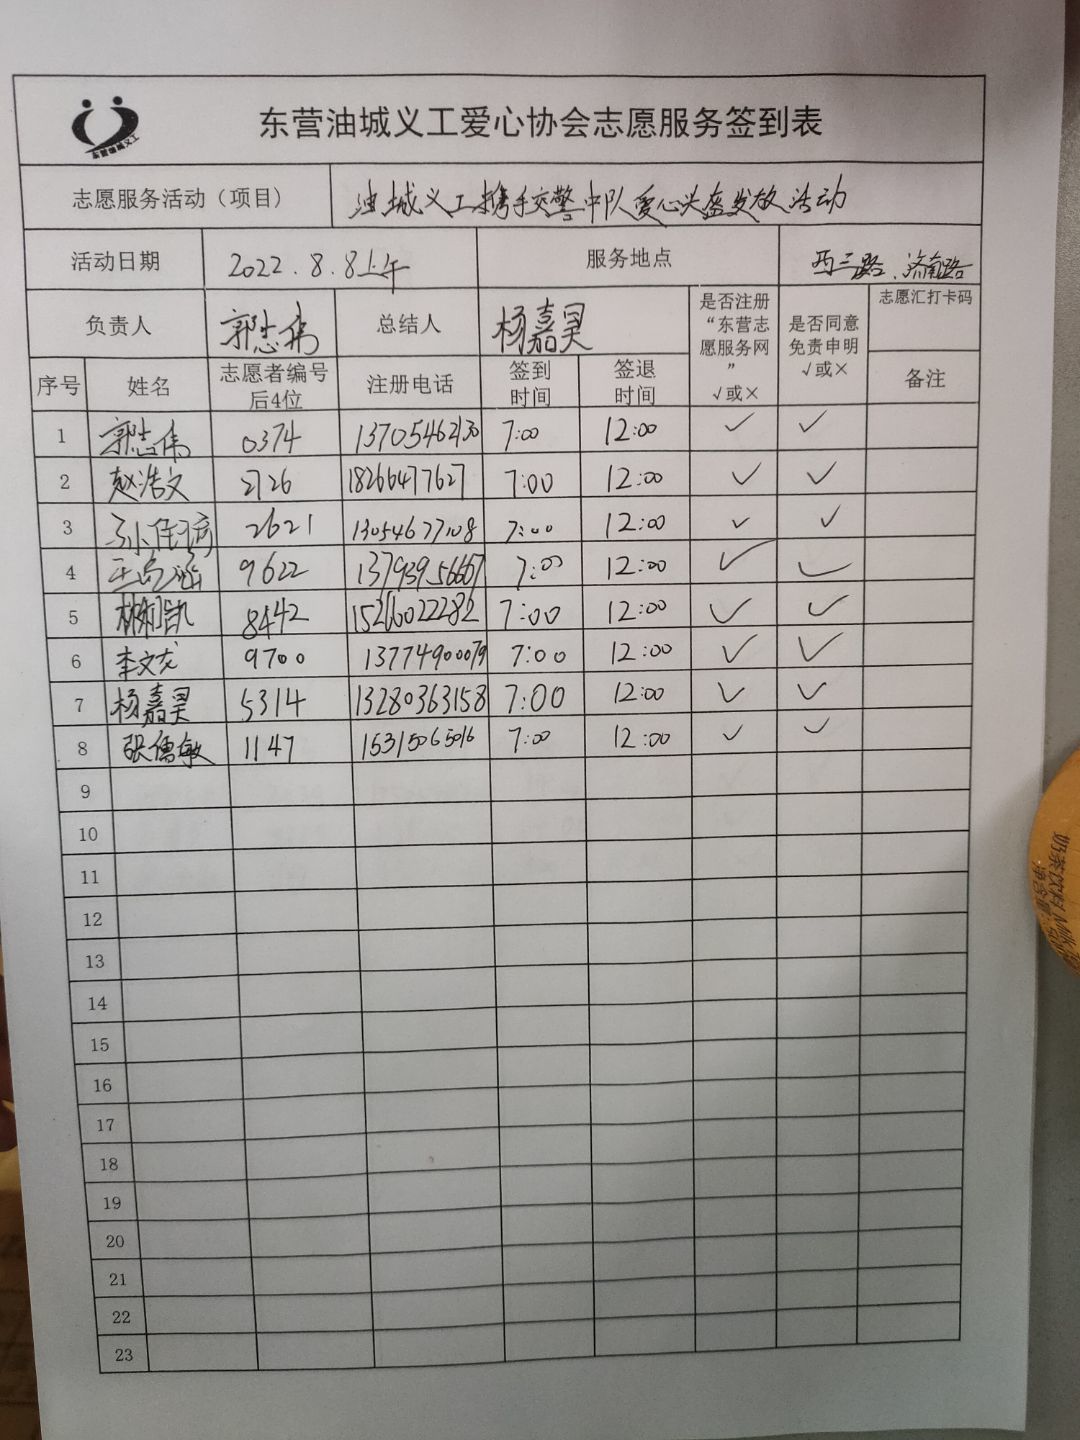 东营油城义工
东营油城义工爱心协会志愿服务签到表
志愿服务活动（项目） 油城义工携手交警中队爱心头盔发放活动
活动日期 2022.8.8上午 服务地点 西三路、济南路
负责人 郭志伟 总结人 杨嘉昊 是否注册“东营志愿服务网” √或× 是否同意免责申明 √或× 志愿汇打卡码
序号 姓名 志愿者编号后4位 注册电话 签到时间 签退时间 备注
1 郭志伟 0374 13705462130 7:00 12:00 ✓ ✓
2 赵浩文 2726 18266477627 7:00 12:00 ✓ ✓
3 2621 13054677108 7:00 12:00 ✓ ✓
4 9622 13793956667 7:00 12:00 ✓ ✓
5 8442 15266022282 7:00 12:00 ✓ ✓
6 李文龙 9700 13774900079 7:00 12:00 ✓ ✓
7 杨嘉昊 5314 13280363158 7:00 12:00 ✓ ✓
8 张儒敏 1147 15315065016 7:00 12:00 ✓ ✓
9
10
11
12
13
14
15
16
17
18
19
20
21
22
23
奶茶饮料 Milk
净含量: